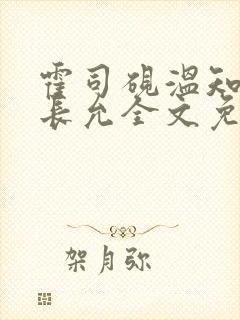 霍司砚温知
長允全文免
架月弥